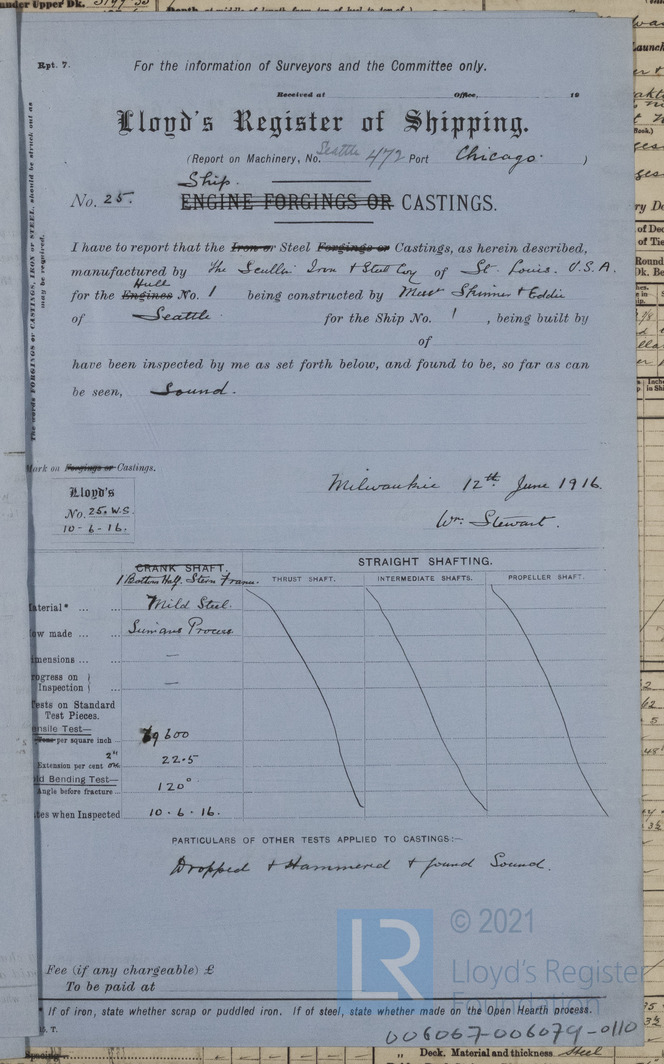 Rpt. 7.
For the information of Surveyors and the Committee only.
Received at Office, 19
Lloyd's Register of Shipping.
(Report on Machinery, No. Seattle 472 Port Chicago.)
Ship.
No. 25. ENGINE FORGINGS OR CASTINGS.
The words FORGINGS or CASTINGS, IRON or STEEL, should be struck out as may be required.
I have to report that the Iron or Steel Forgings or Castings, as herein described,
manufactured by The Scullin Iron & Steel Coy of St. Louis. U.S.A.
Hull
for the Engines No. 1 being constructed by Messrs Skinner & Eddie
of Seattle for the Ship No. 1, being built by
of
have been inspected by me as set forth below, and found to be, so far as can
be seen, Sound.
Mark on Forgings or Castings.
Lloyd's
No. 25. W.S.
10-6-16.
Milwaukie 12th June 1916.
Wm. Stewart.
CRANK SHAFT. STRAIGHT SHAFTING.
1 Bottom Half Stern Frame. THRUST SHAFT. INTERMEDIATE SHAFTS. PROPELLER SHAFT.
aterial* ... ... Mild Steel.
ow made ... Siemans Process
imensions ... ... —
rogress on
Inspection ... —
ests on Standard
Test Pieces.
ensile Test—
Tons per square inch ... 9600
2"
Extension per cent on 22.5
ld Bending Test—
Angle before fracture ... 120°
tes when Inspected 10.6.16.
PARTICULARS OF OTHER TESTS APPLIED TO CASTINGS:—
Dropped & Hammered & found Sound.
Fee (if any chargeable) £
To be paid at
© 2021
LR
Lloyd's Register
Foundation
* If of iron, state whether scrap or puddled iron. If of steel, state whether made on the Open Hearth process.
T.
006067-006079-0110
Deck. Material and thickness Steel